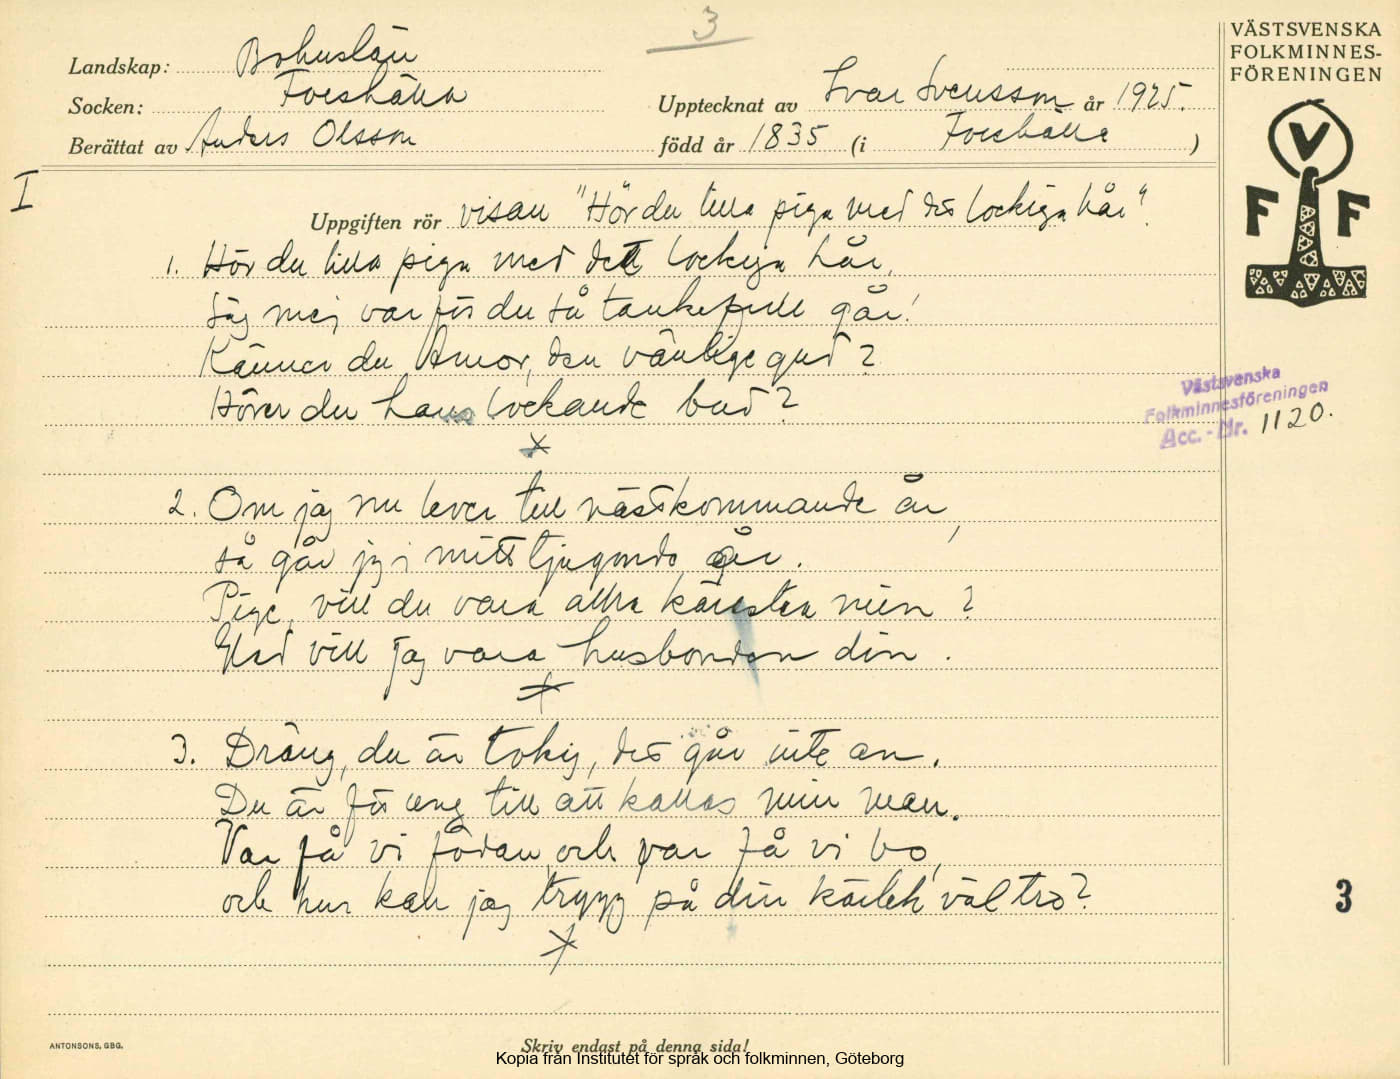 3
VÄSTSVENSKA
FOLKMINNES-
FÖRENINGEN
Landskap: Bohuslän
Socken: Foreshälla
Upptecknat av Ivar Svensson år 1925.
Berättat av Anders Olsson
född år 1835 (i Foreshälla )
V
F F
I
Uppgiften rör visan "Hör du lilla piga med det lockiga hår".
1. Hör du lilla piga med dett lockiga hår,
Säj mej varför du så tankefull går!
Känner du Amor, den vänlige gud?
Hörer du hans lockande bud?
Västsvenska
Folkminnesföreningen
Acc. - Nr. 1120.
2. Om jag nu lever till nästkommande år,
så går jag i mitt tjugonde år.
Piga, vill du vara allra kärestan min?
Glad vill jag vara husbonden din.
3. Dräng, du är tokig, det går inte an.
Du är för ung till att kallas min man.
Var få vi födan och var få vi bo,
och hur kan jag trygg på din kärlek väl tro?
3
ANTONSONS, GBG.
Skriv endast på denna sida!
Kopia från Institutet för språk och folkminnen, Göteborg